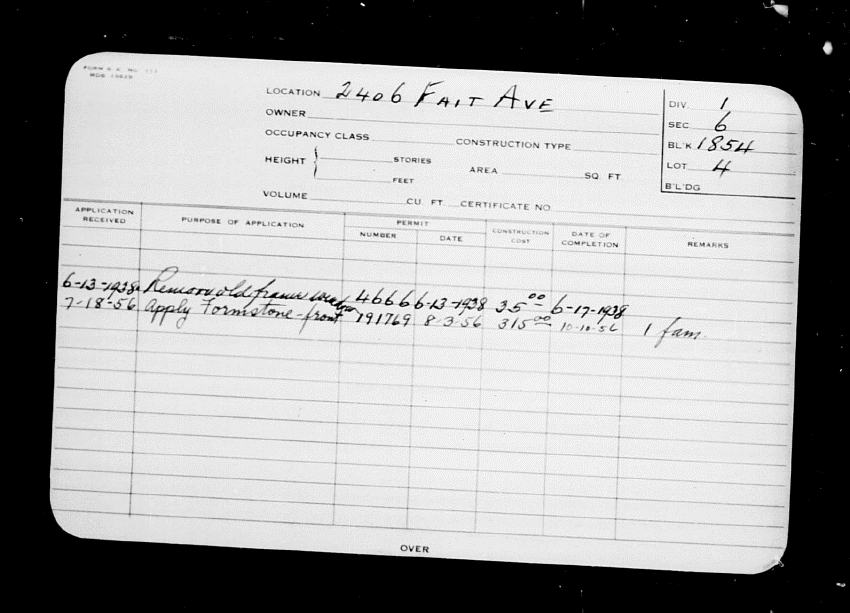 FORM
LOCATION 2406 FAIT AVE
OWNER
OCCUPANCY CLASS CONSTRUCTION TYPE
HEIGHT { STORIES
FEET
AREA SQ. FT.
VOLUME CU. FT. CERTIFICATE NO.
DIV. 1
SEC. 6
BL'K 1854
LOT 4
B'L'DG
APPLICATION RECEIVED PURPOSE OF APPLICATION PERMIT NUMBER DATE CONSTRUCTION COST DATE OF COMPLETION REMARKS
6-13-1938 Remove old frame 4666 6-13-1938 35 00 6-17-1938
7-18-56 Apply Formstone-front 191769 8-3-56 315 00 10-10-56 1 fam.
OVER